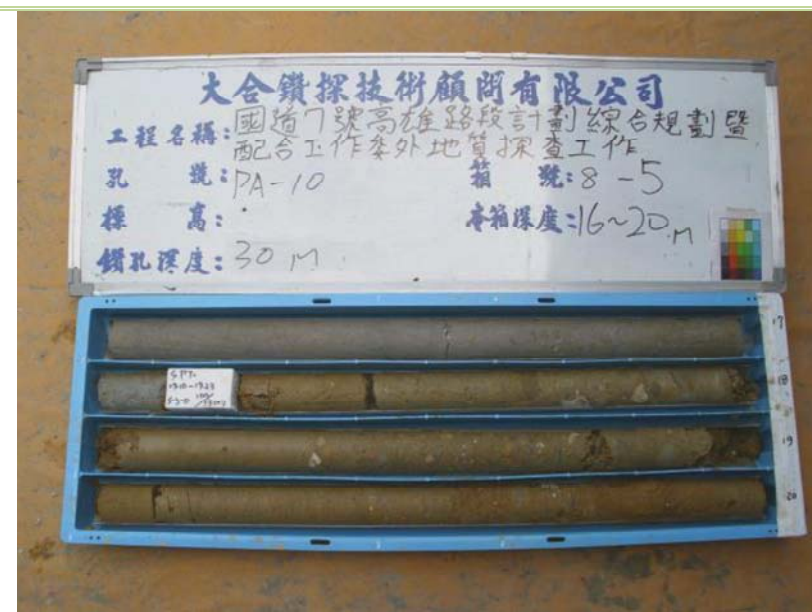 大合鑽探技術顧問有限公司
工程名稱:國道7號高雄路段計劃綜合規劃暨
配合工作委外地質探查工作
孔 號:PA-10 箱 號:8-5
標 高: 本箱深度:16~20.M
鑽孔深度:30 M
17
18
19
20